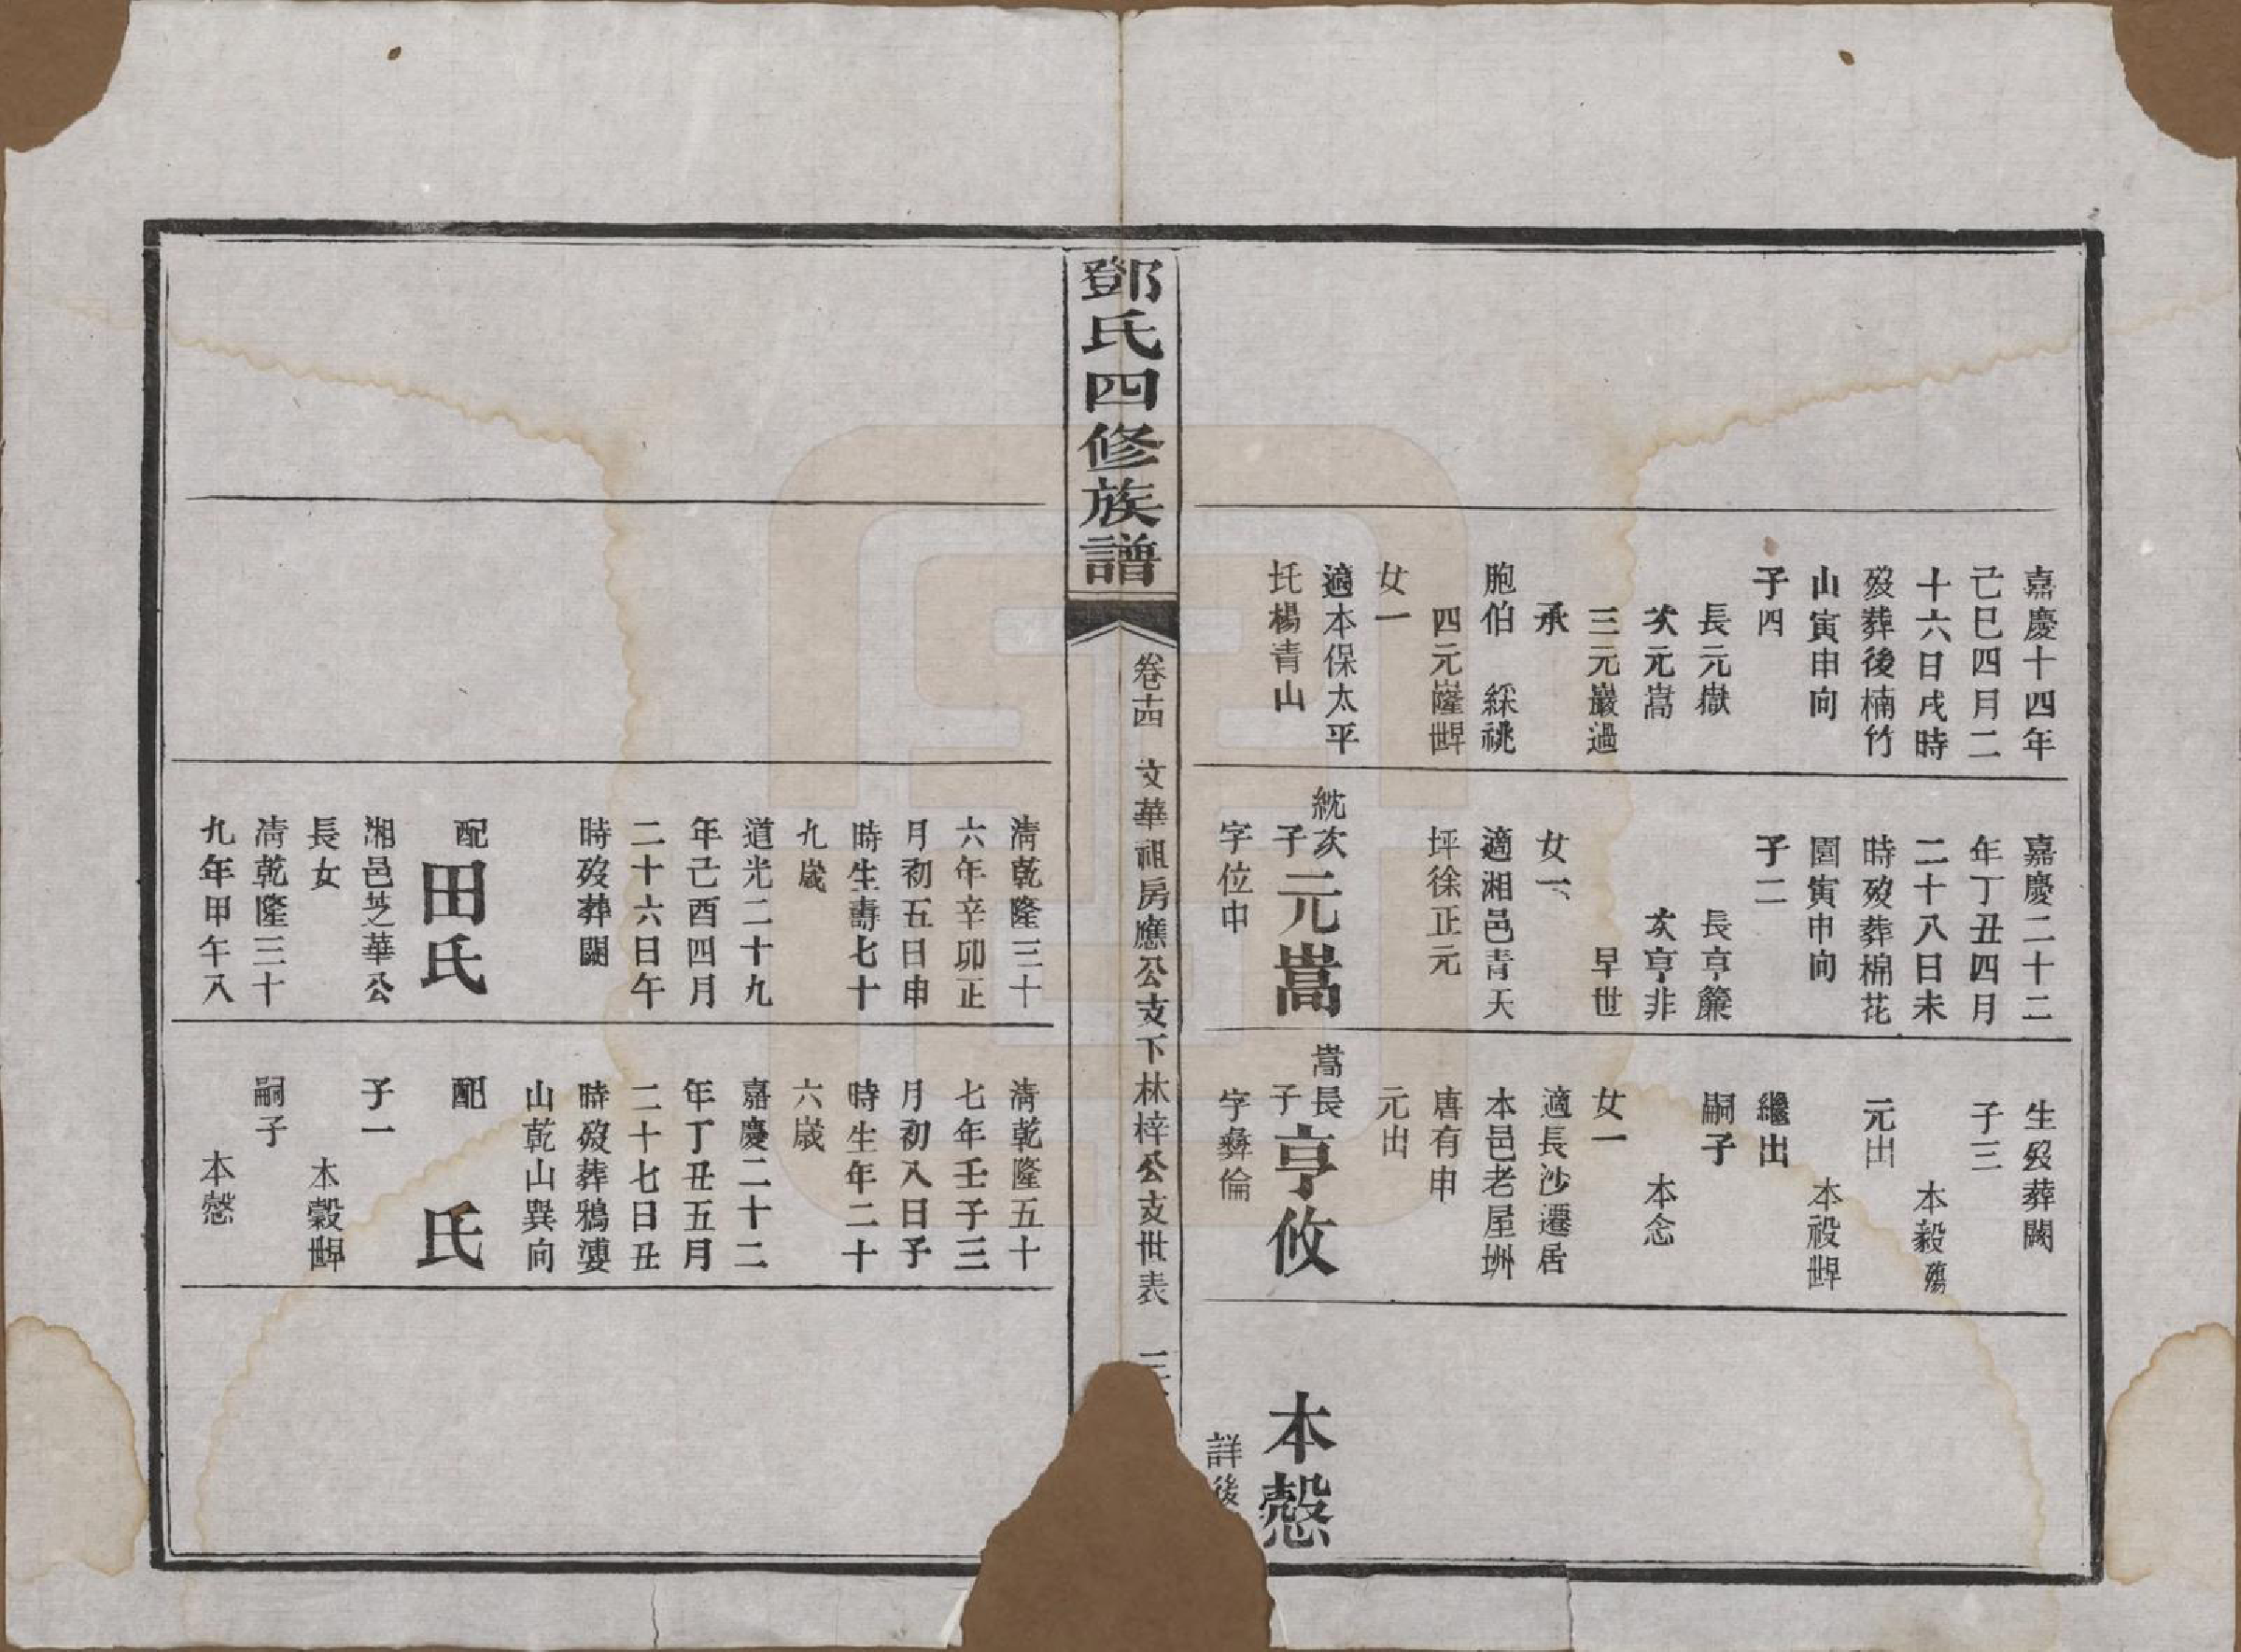 嘉慶十四年
己巳四月二
十六日戌時
歿葬後楠竹
山寅申向
子四
長元嶽
次元嵩
三元巖過
承
胞伯 綵祧
四元嶐世畢
女一
適本保太平
托楊青山
嘉慶二十二
年丁丑四月
二十八日未
時歿葬棉花
園寅申向
子二
長亨簾
次亨非
早世
女一
適湘邑青天
坪徐正元
紞次子元嵩
字位中
生歿葬闕
子三
本毅殤
元出
本祋世畢
繼出
嗣子
本念
女一
適長沙遷居
本邑老屋坤
唐有申
元出
嵩長子亨攸
字彝倫
本慤
詳後
鄧氏四修族譜
卷十四 文華祖房應公支下林梓公支世表
清乾隆三十
六年辛卯正
月初五日申
時生壽七十
九歲
道光二十九
年己酉四月
二十六日午
時歿葬闕
配田氏
湘邑芝華公
長女
清乾隆三十
九年甲午八
清乾隆五十
七年壬子三
月初八日子
時生年二十
六歲
嘉慶二十二
年丁丑五月
二十七日丑
時歿葬鴉婆
山乾山巽向
配 氏
子一
本穀世畢
嗣子
本慤